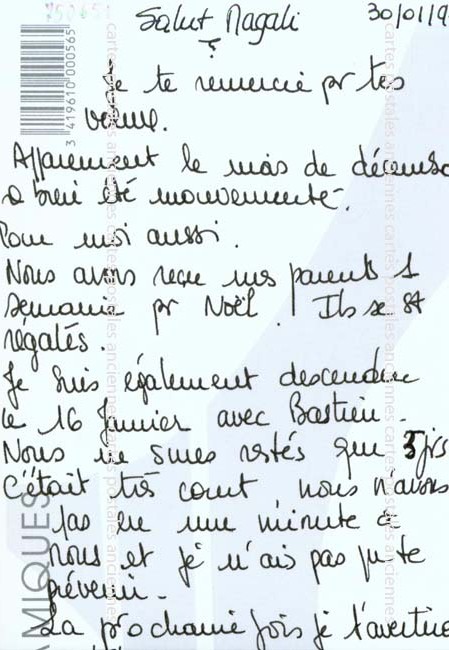 Salut Magali
30/01/9
Je te remercie pr tes
vœux.
Apparemment le mois de décemb
a bien été mouvementé.
Pour moi aussi.
Nous avons reçu mes parents 1
semaine pr Noël. Ils se st
régalés.
Je suis également descendue
le 16 Janvier avec Bastien.
Nous ne sms restés que 5 jrs
C'était très court nous n'avons
pas eu une minute à
nous et je n'ais pas pu te
prévenir.
La prochaine fois je t'avertirai
3 419610 000565
AMIQUES
cartes postales anciennes cartes postales anciennes cartes postales anciennes